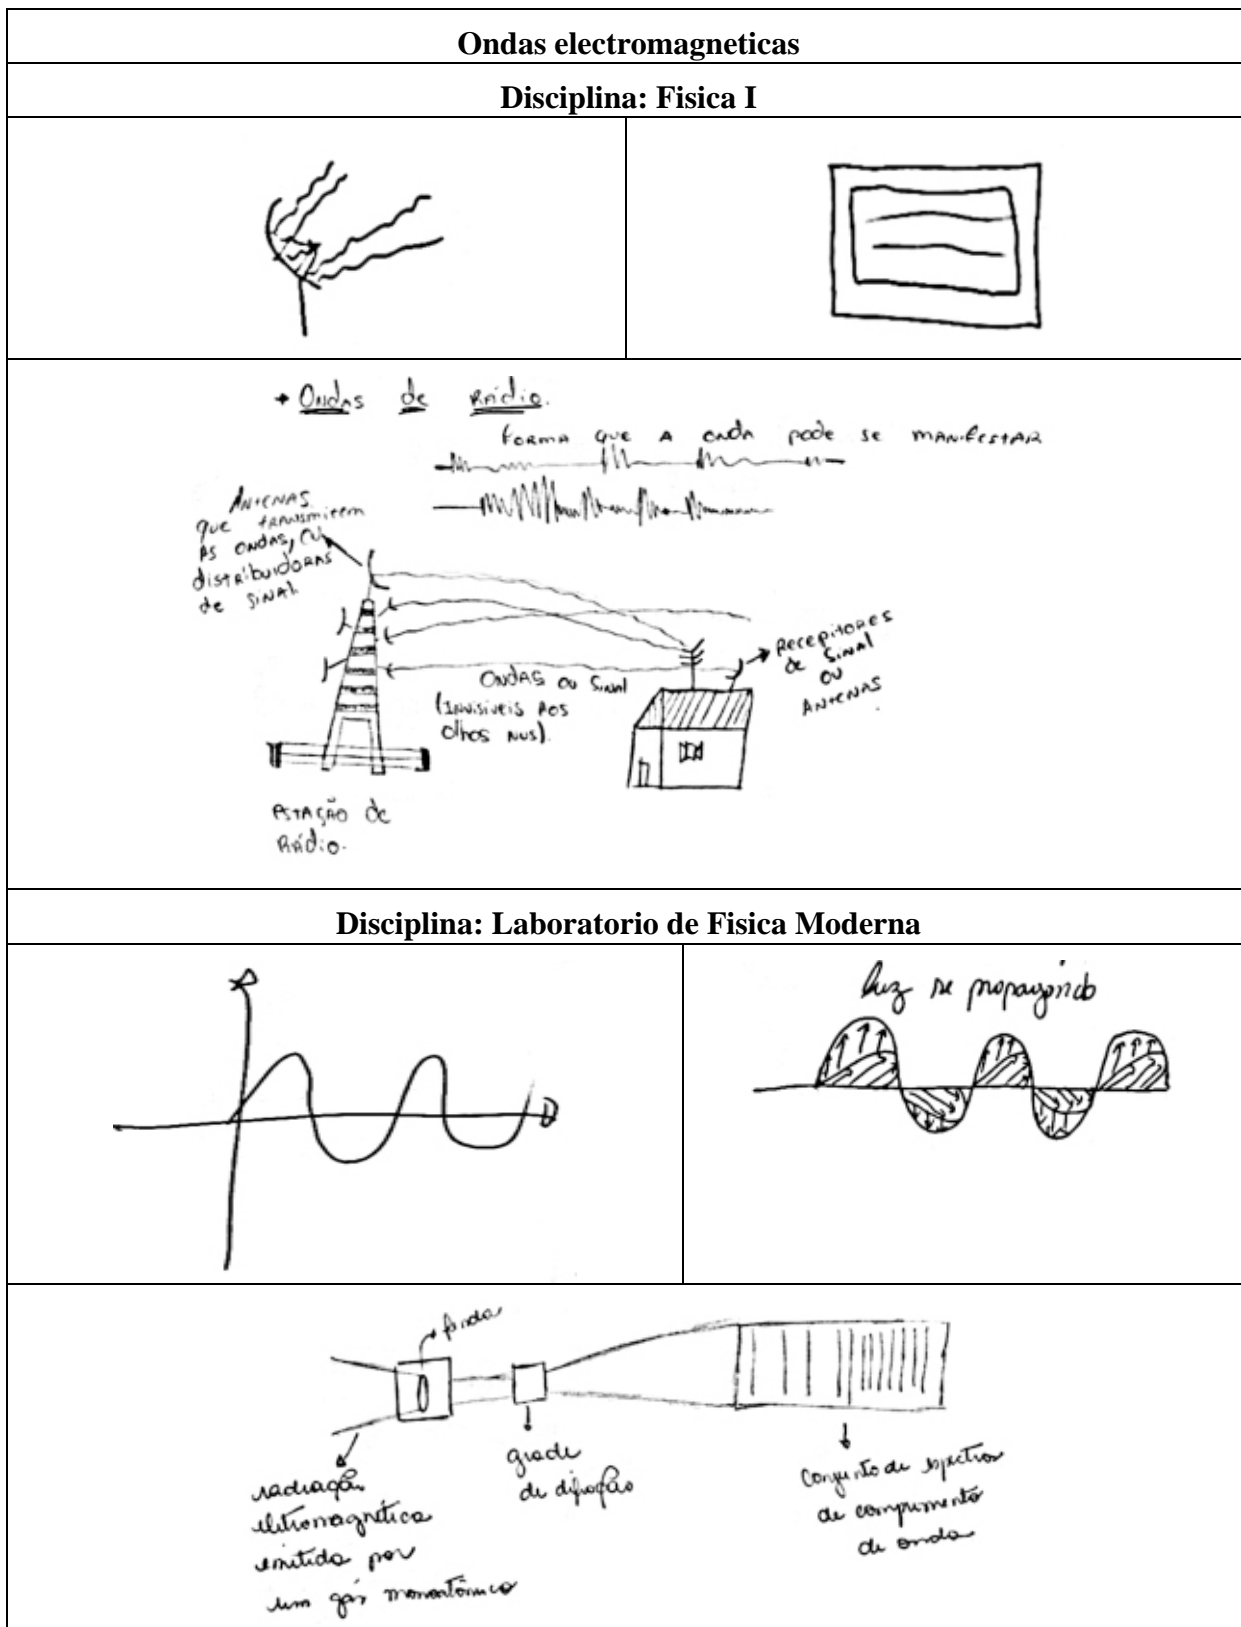 Ondas electromagneticas
Disciplina: Fisica I
→ Ondas de Rádio.
Forma que a onda pode se manifestar
Antenas
que transmitem
as ondas, ou
distribuidoras
de sinal
Receptitores
de sinal
ou
Antenas
Ondas ou sinal
(Invisiveis aos
olhos nus).
Estação de
Rádio.
Disciplina: Laboratorio de Fisica Moderna
luz se propagando
fenda
radiação
eletromagnética
emitida por
um gás monoatômico
grade
de difração
conjunto de espectros
de comprimento
de onda